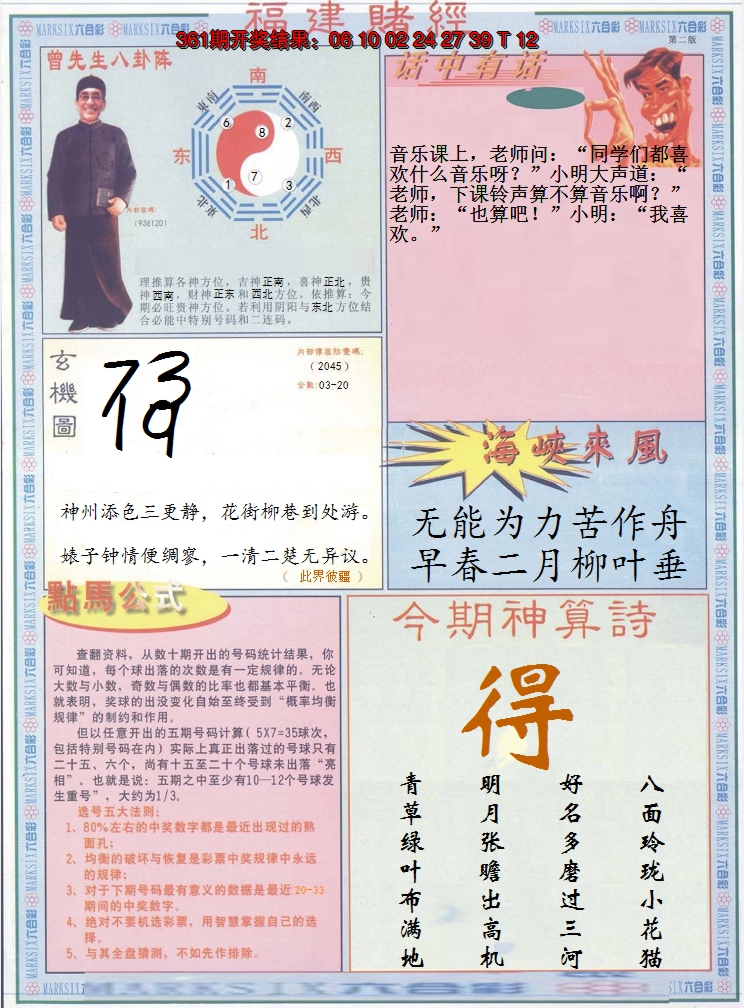 福建賭經
361期开奖结果：06 10 02 24 27 39 T 12
第二版
曾先生八卦阵
南
东南
南西
6
8
2
东
西
1
7
3
東北
北西
北
内部密碼:
(936120)
理推算各神方位，吉神正南，喜神正北，贵
神西南，财神正东和西北方位。依推算：今
期必旺贵神方位。若利用阴阳与东北方位结
合必能中特别号码和二连码。
话中有话
音乐课上，老师问：“同学们都喜
欢什么音乐呀？”小明大声道：“
老师，下课铃声算不算音乐啊？”
老师：“也算吧！”小明：“我喜
欢。”
玄機圖
（2045）
合数:03-20
神州添色三更静，花街柳巷到处游。
婊子钟情便绸寥，一清二楚无异议。
（ 此界彼疆 ）
海峽來風
无能为力苦作舟
早春二月柳叶垂
點馬公式
查翻资料，从数十期开出的号码统计结果，你
可知道，每个球出落的次数是有一定规律的。无论
大数与小数，奇数与偶数的比率也都基本平衡。也
就表明，奖球的出没变化自始至终受到“概率均衡
规律”的制约和作用。
但以任意开出的五期号码计算( 5X7=35球次，
包括特别号码在内）实际上真正出落过的号球只有
二十五、六个，尚有十五至二十个号球未出落“亮
相”。也就是说：五期之中至少有10—12个号球发
生重号”，大约为1/3。
选号五大法则：
1、80%左右的中奖数字都是最近出现过的熟
面孔；
2、均衡的破坏与恢复是彩票中奖规律中永远
的规律；
3、对于下期号码最有意义的数据是最近20-33
期间的中奖数字。
4、绝对不要机选彩票，用智慧掌握自己的选
择。
5、与其全盘猜测，不如先作排除。
今期神算詩
得
青草绿叶布满地
明月张瞻出高机
好名多磨过三河
八面玲珑小花猫
MARKSIX六合彩